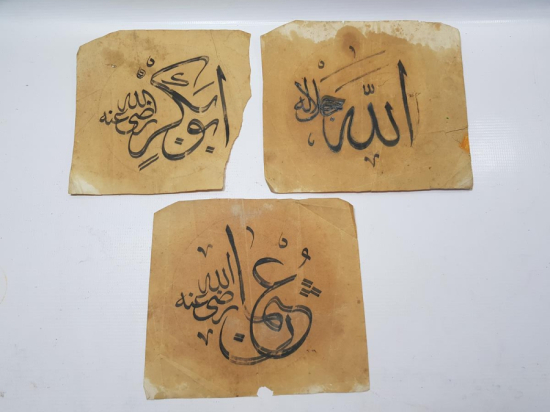 ابو بكر رضى الله عنه
الله جل جلاله
عثمان رضى الله عنه